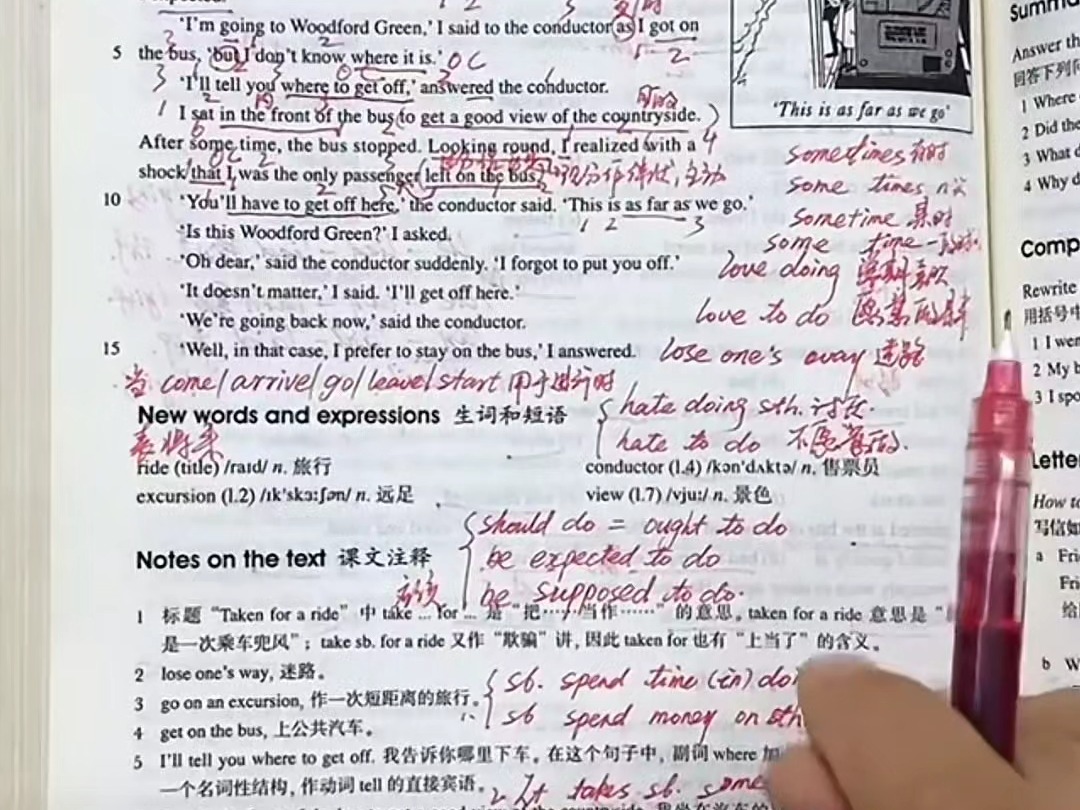 'I'm going to Woodford Green,' I said to the conductor as I got on
5 the bus, 'but I don't know where it is.' OC
'I'll tell you where to get off,' answered the conductor.
I sat in the front of the bus to get a good view of the countryside.
After some time, the bus stopped. Looking round, I realized with a
shock that I was the only passenger left on the bus.
10 'You'll have to get off here,' the conductor said. 'This is as far as we go.'
'Is this Woodford Green?' I asked.
'Oh dear,' said the conductor suddenly. 'I forgot to put you off.'
'It doesn't matter,' I said. 'I'll get off here.'
'We're going back now,' said the conductor.
15 'Well, in that case, I prefer to stay on the bus,' I answered.
'This is as far as we go'
sometimes 有时
some times n次
sometime 某时
some time 一段时
love doing
love to do
lose one's away 迷路
当 come/arrive/go/leave/start 用于进行时
表将来
hate doing sth. 讨厌
hate to do 不愿
New words and expressions 生词和短语
ride (title) /raɪd/ n. 旅行
excursion (l.2) /ɪk'skɜːʃən/ n. 远足
conductor (l.4) /kən'dʌktə/ n. 售票员
view (l.7) /vjuː/ n. 景色
应该
should do = ought to do
be expected to do
be supposed to do.
Notes on the text 课文注释
1 标题 "Taken for a ride" 中 take ... for ... 是 "把……当作……" 的意思。taken for a ride 意思是 "
是一次乘车兜风"；take sb. for a ride 又作 "欺骗" 讲, 因此 taken for 也有 "上当了" 的含义。
2 lose one's way, 迷路。
3 go on an excursion, 作一次短距离的旅行。
4 get on the bus, 上公共汽车。
sb. spend time (in) doi
sb spend money on sth
5 I'll tell you where to get off. 我告诉你哪里下车。在这个句子中, 副词 where 加
一个名词性结构, 作动词 tell 的直接宾语。
2. It takes sb. some
Summa
Answer th
回答下列问
1 Where
2 Did the
3 What d
4 Why d
Comp
Rewrite
用括号中
1 I wer
2 My b
3 I spo
Letter
How to
写信如
a Fri
Fri
给
b W